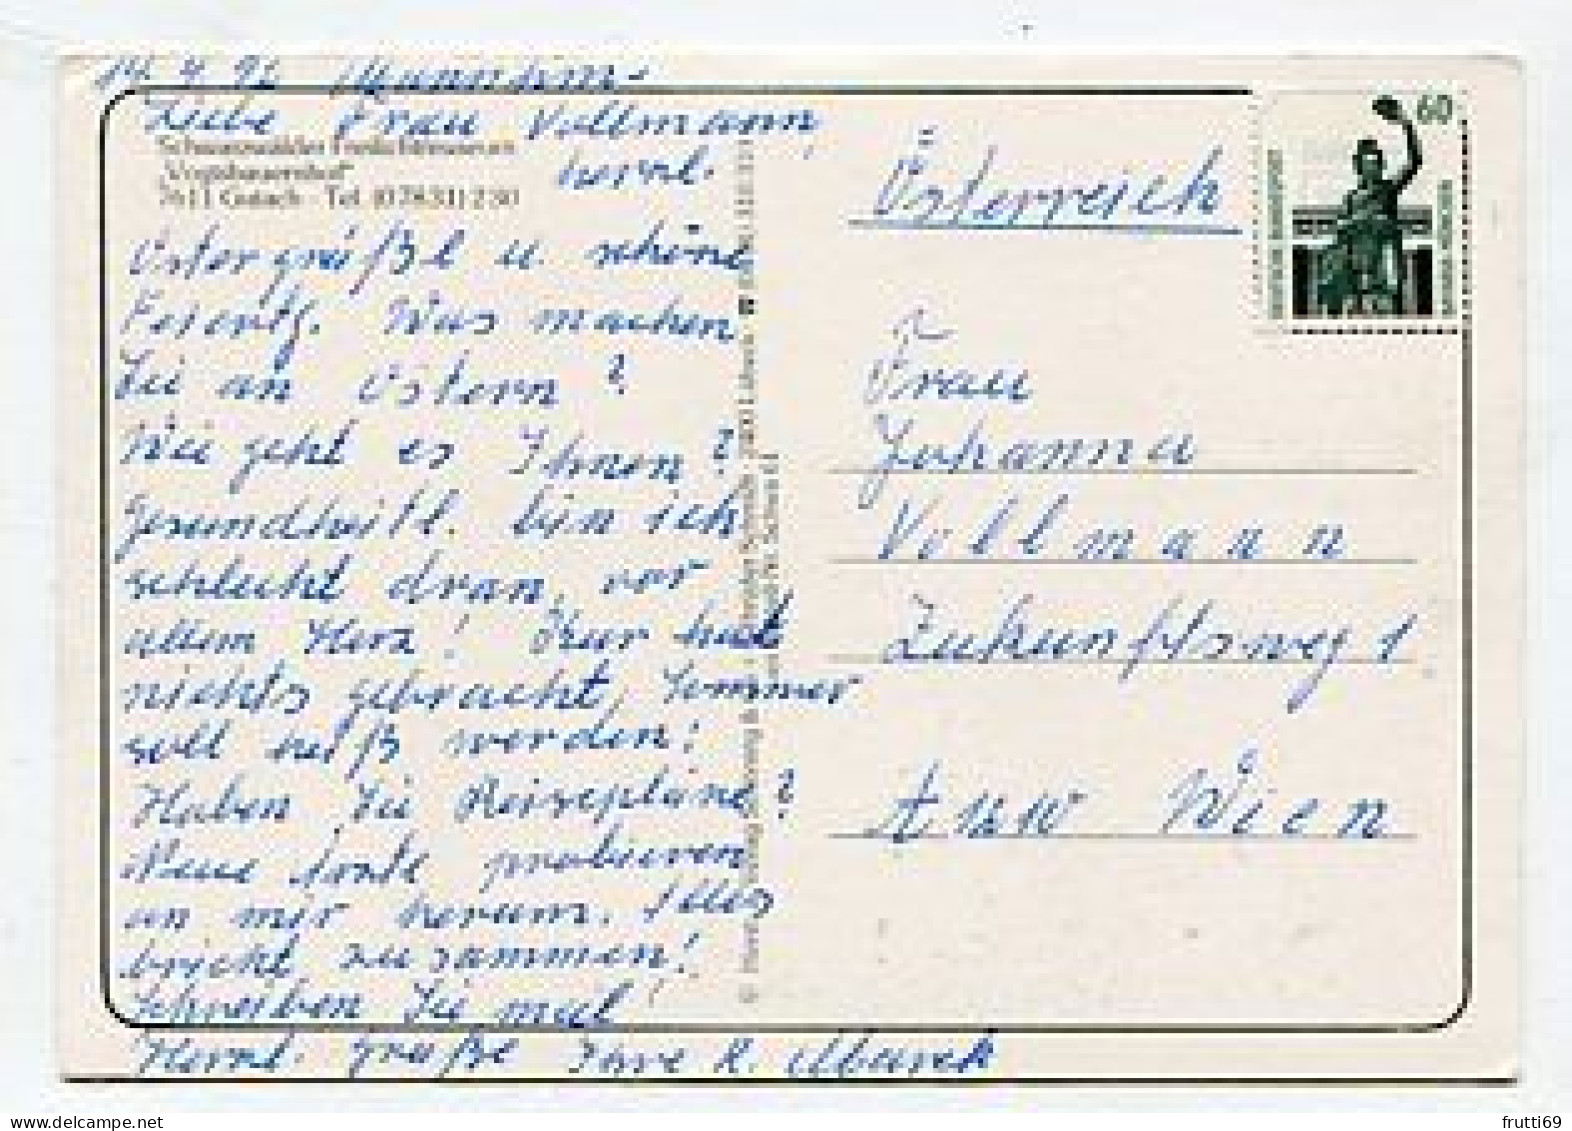 Mannheim
Liebe Frau Vollmann,
Schwarzwälder Freilichtmuseum
"Vogtsbauernhof"
7611 Gutach · Tel. (07831) 230
herzl.
Ostergrüßl u. schöne
Feiertg. Was machen
Sie an Ostern?
Wie geht es Ihnen?
Gesundheitl. bin ich
schlecht dran, vor
allem Herz! Kur hat
nichts gebracht, Sommer
soll heiß werden!
Haben Sie Reisepläne?
Neue Ärzte probieren
an mir herum. Alles
bricht zusammen!
Schreiben Sie mal!
Herzl. Grüße Ihre
Österreich
60
DEUTSCHE BUNDESPOST
BAVARIA MÜNCHEN
Frau
Johanna
Vollmann
Zukunftsweg 1
Wien
frutti69